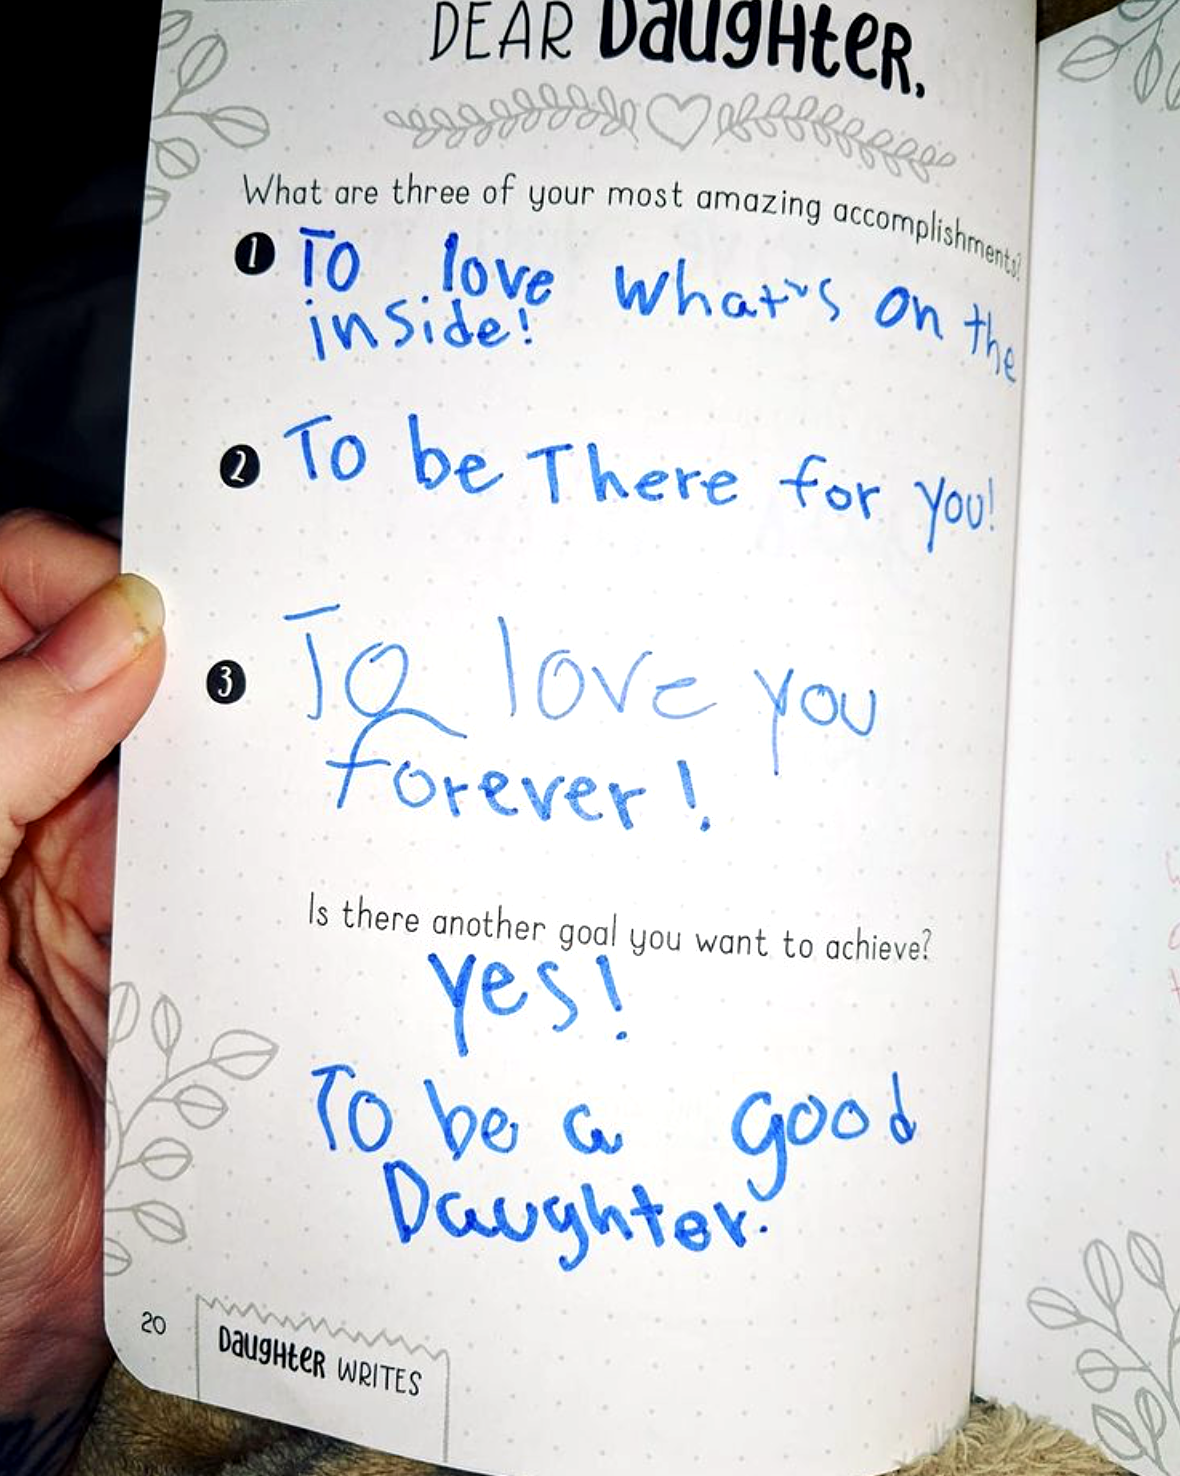 DEAR DaugHteR,
What are three of your most amazing accomplishments?
1 To love what's on the
inside!
2 To be There for you!
3 To love you
forever!
Is there another goal you want to achieve?
yes!
To be a good
Daughter.
20
DaugHteR WRITES